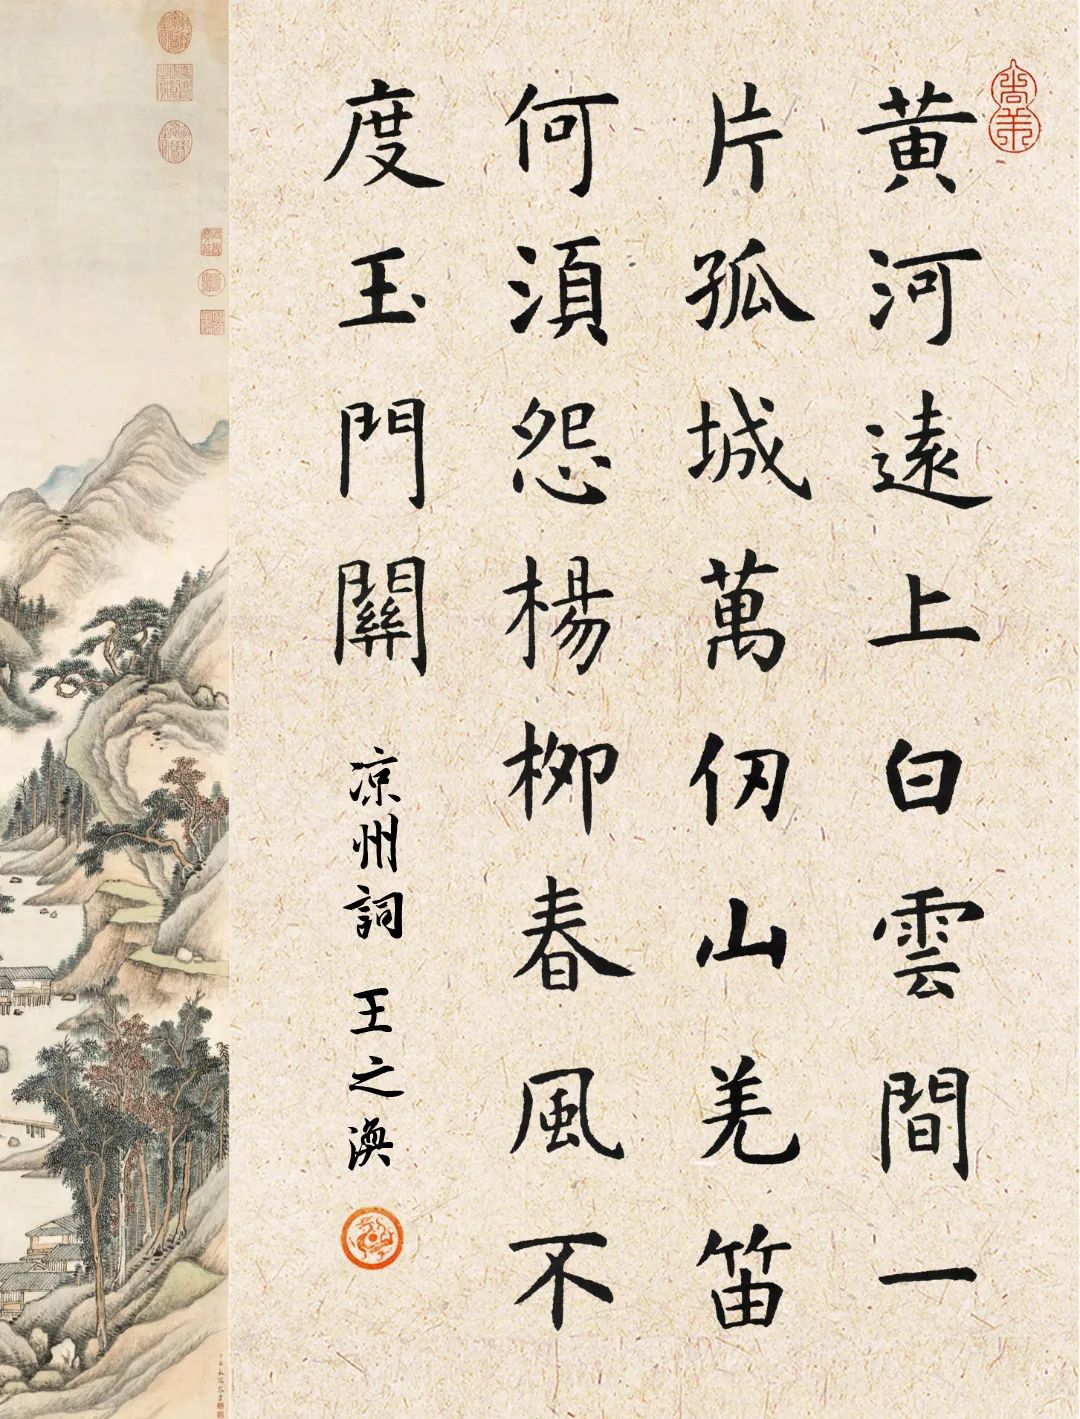 黃河遠上白雲間一
片孤城萬仞山羌笛
何須怨楊柳春風不
度玉門關
凉州詞 王之渙